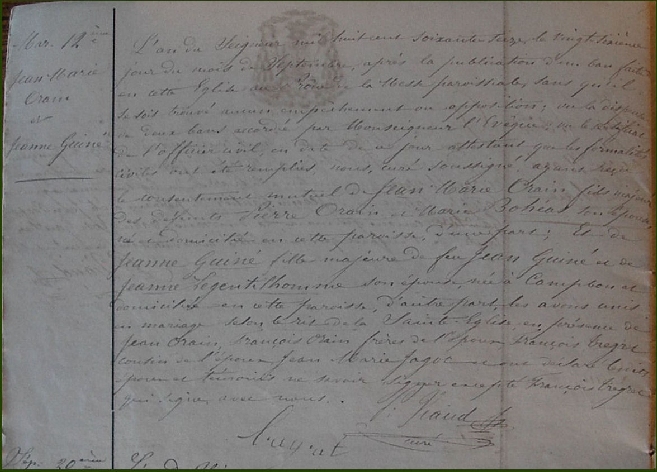 Mar. 12e
Jean Marie
Orain
et
Jeanne Guiné
L'an du Seigneur mil huit cent soixante treize, le vingt troisième
jour du mois de Septembre, après la publication d'un ban faite
en cette Eglise au Prône de la Messe paroissiale, sans qu'il
se soit trouvé aucun empêchement ou opposition; vu la dispense
de deux bans accordée par Monseigneur l'Evêque; vu le certificat
de l'officier civil en date de ce jour attestant que les formalités
civiles ont été remplies, nous, curé soussigné, ayant reçu
le consentement mutuel de Jean Marie Orain fils majeur
des défunts Pierre Orain et Marie Bohéas son épouse,
né et domicilié en cette paroisse, d'une part; Et de
Jeanne Guiné fille majeure de feu Jean Guiné et de
Jeanne Legentilhomme son épouse, née à Campbon et
domiciliée en cette paroisse, d'autre part, les avons unis
en mariage selon le rit de la Sainte Eglise en présence de
Jean Orain, François Orain frères de l'époux, François
cousin de l'époux, Jean Marie
époux et témoins ne savoir signer excepté François
qui signe avec nous.
curé